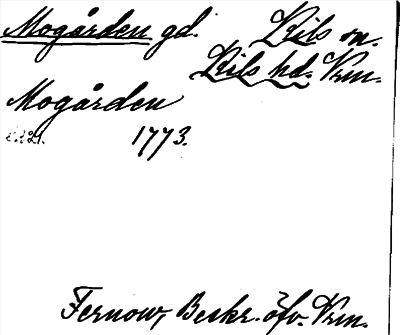 Mogården gd. Kils sn.
Kils hd. Vrm.
Mogården
1773.
Fernow, Beskr. öfv. Vrm.